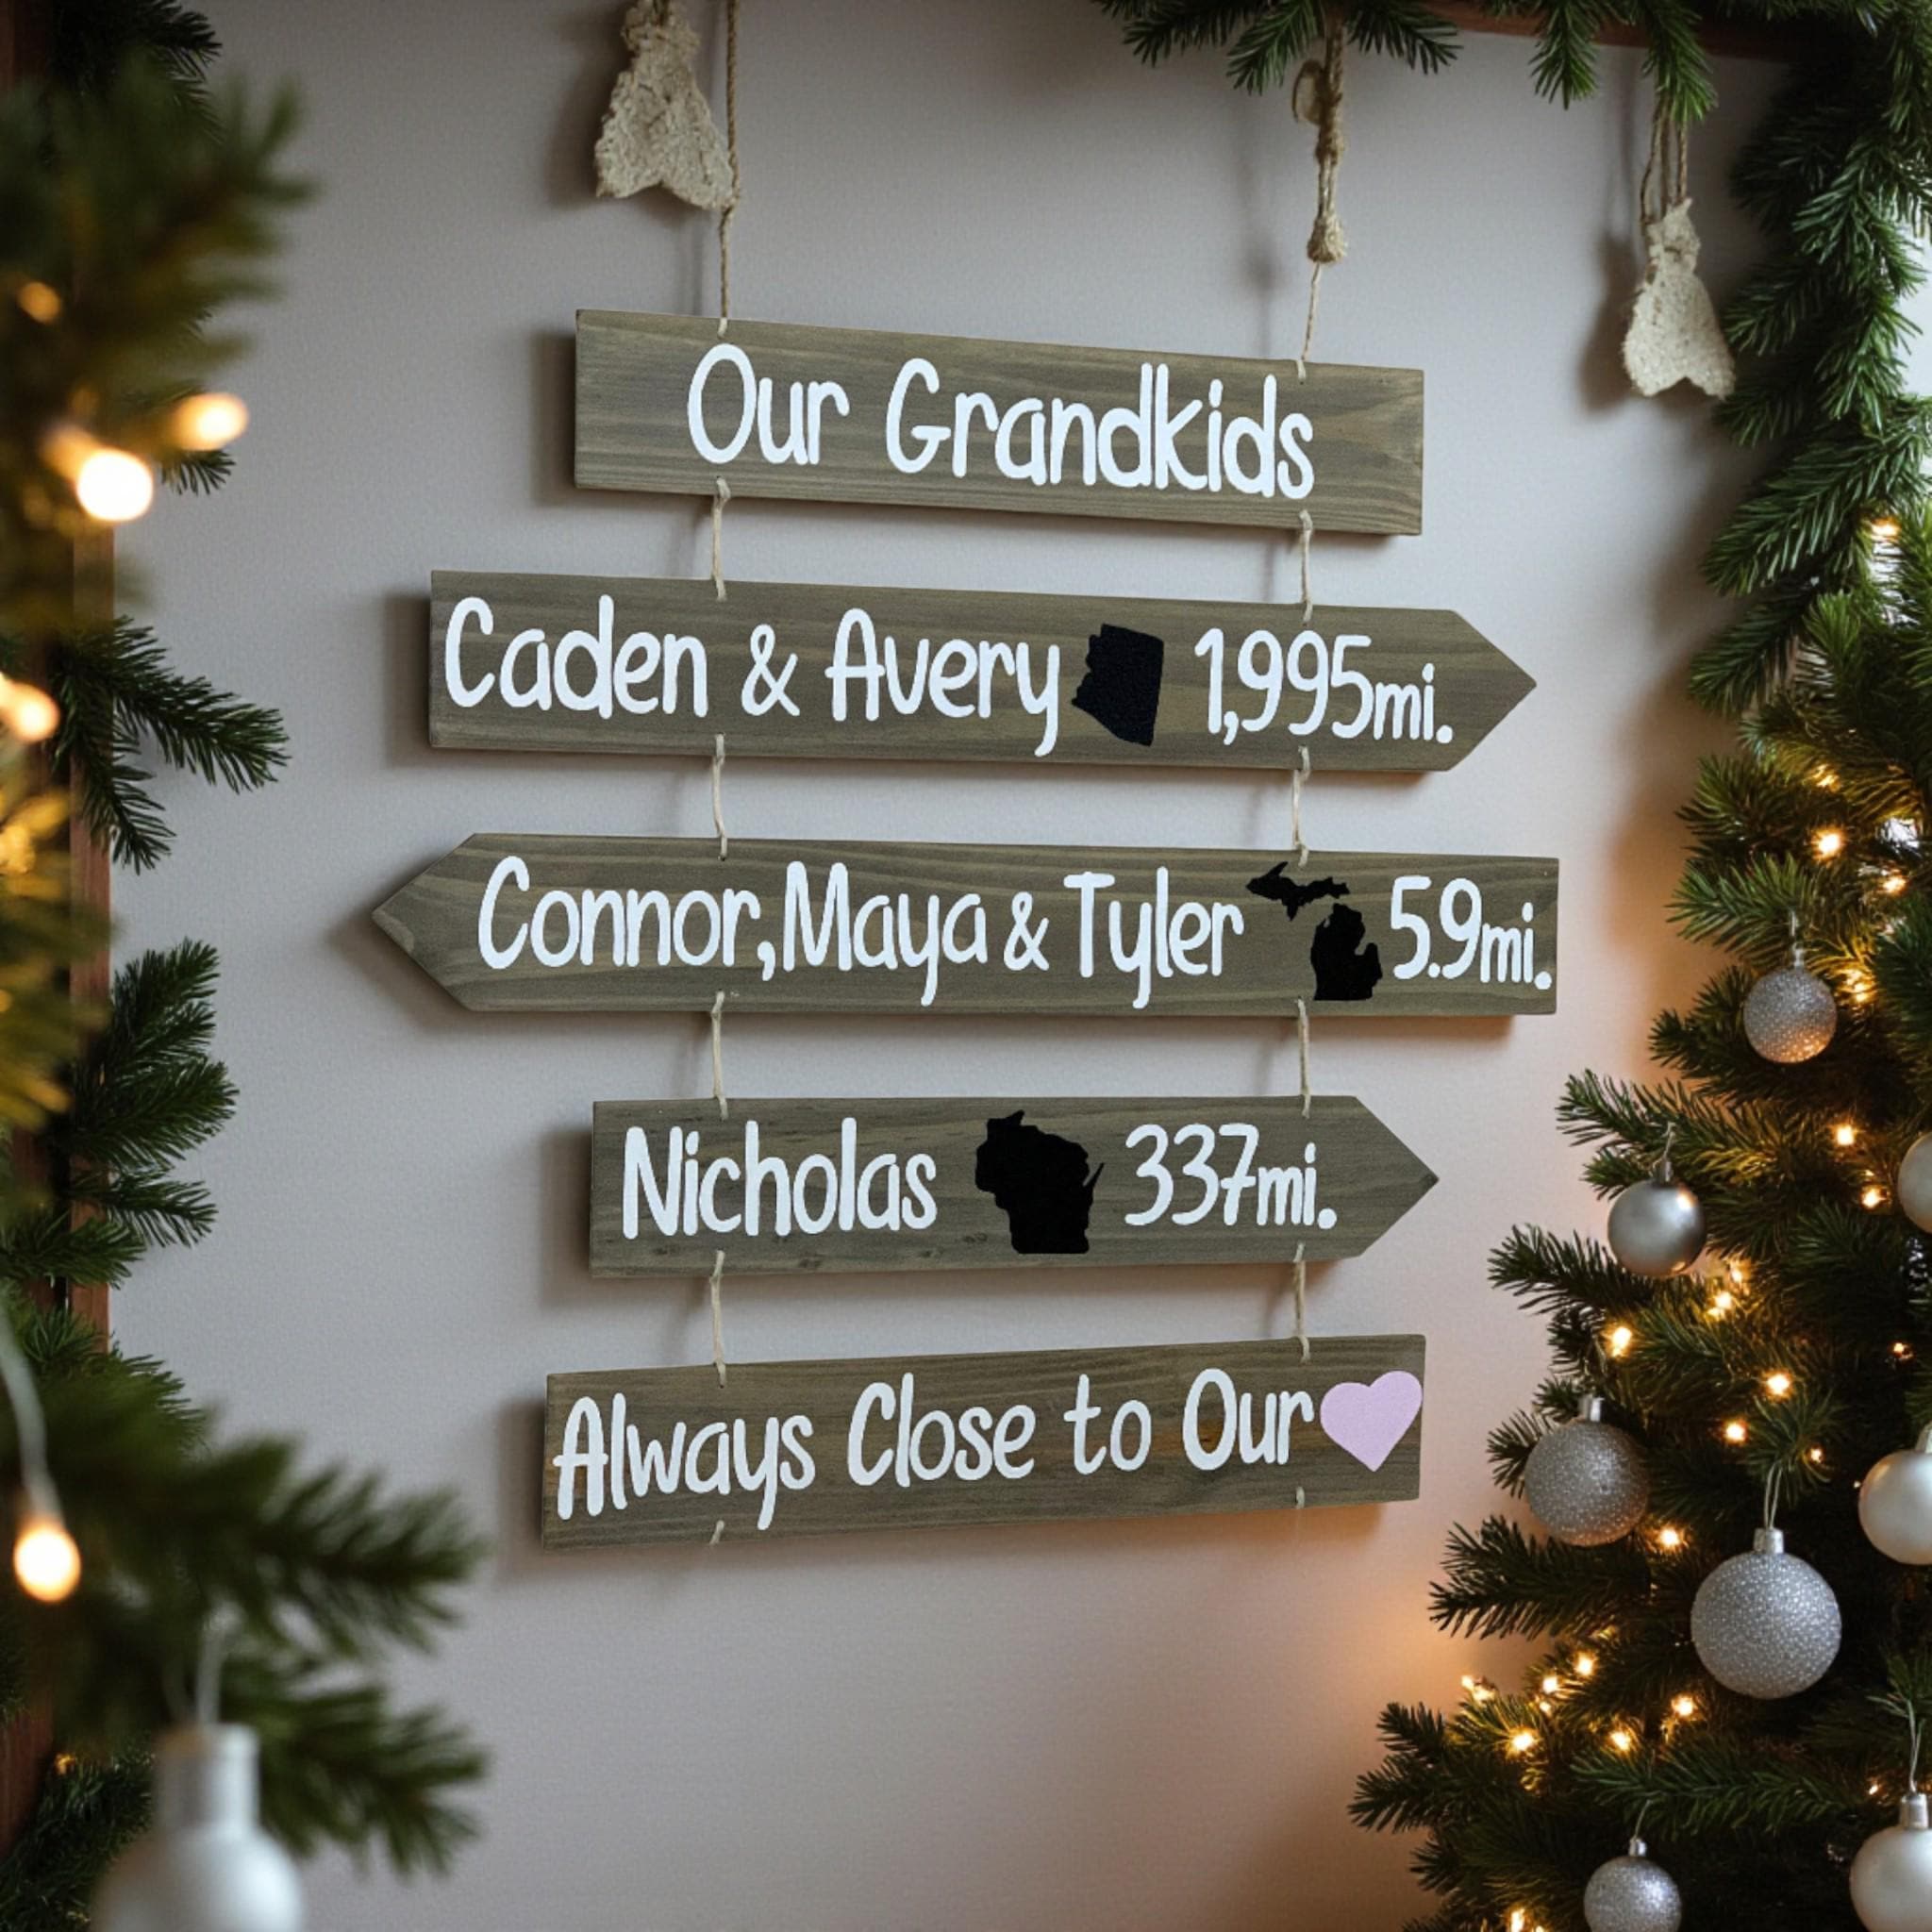 Our Grandkids
Caden & Avery 1,995mi.
Connor, Maya & Tyler 5.9mi.
Nicholas 337mi.
Always Close to Our